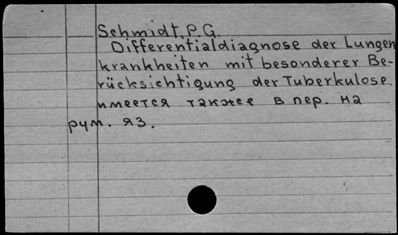 Schmidt, P. G.
Differentialdiagnose der Lungen
krankheiten mit besonderer Be-
rücksichtigung der Tuberkulose
имеется также в пер. на
рум. яз.